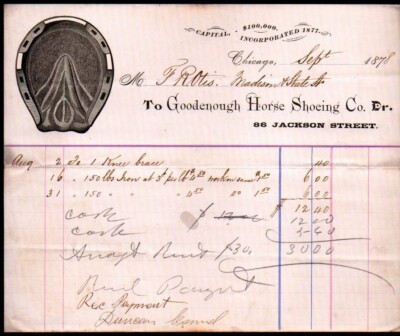 CAPITAL, $100,000. INCORPORATED 1877.
Chicago, Sept 1878
M F R Otis. Madison & State St
To Goodenough Horse Shoeing Co. Dr.
86 JACKSON STREET.
Aug 2 To 1 Knee brace 40
16 " 150 lbs Iron at 3¢ per lb 4.50 1.50 6 00
31 " 150 " " 4.50 " 1.50 6 00
$ 12 40
Cash 12 00
Cash 5 60
Acct Rent $30. 30 00
Rec Payment
Duncan